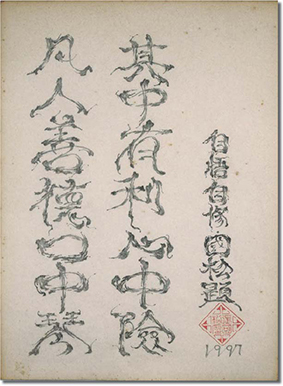 凡人善德口中琴
其中有利心中險
自悟自修國松題
1997